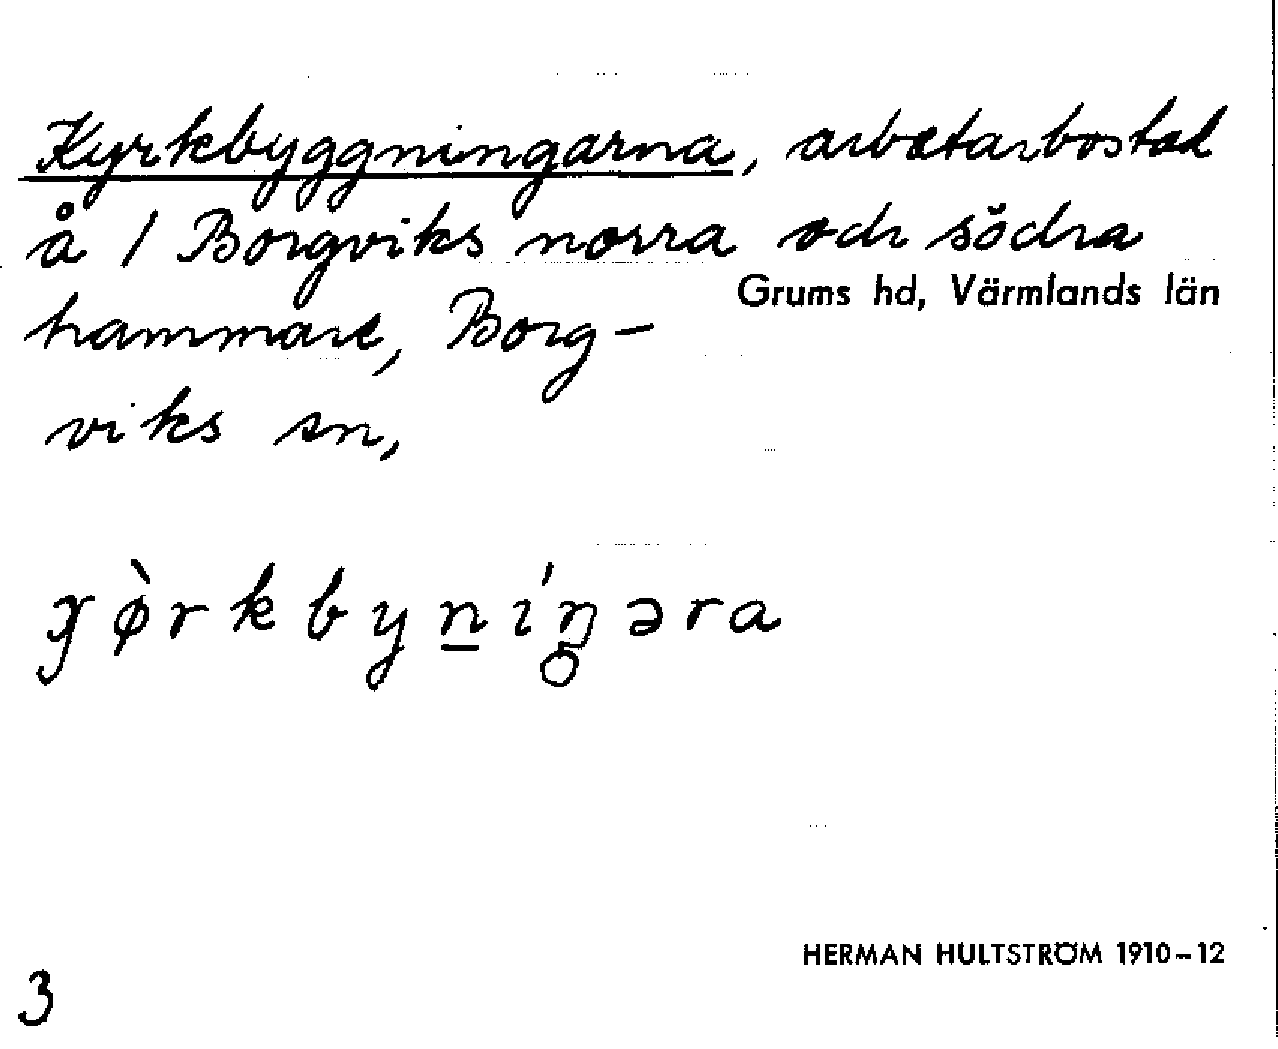 Kyrkbyggningarna, arbetarbostad
å 1 Borgviks norra och södra
Grums hd, Värmlands län
hammare, Borg-
viks sn,
3
HERMAN HULTSTRÖM 1910-12